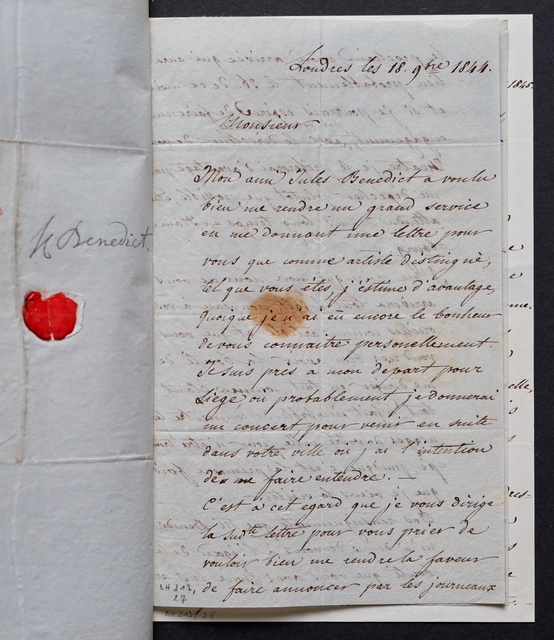 Londres les 18. 9bre 1844.
Monsieur
Mon ami Jules Benedict a voulu
bien me rendre un grand service
en me donnant une lettre pour
vous que comme artiste distinqué,
tel que vous étes, j'éstime d'avantage,
quoique je n'ai eû encore le bonheur
de vous connaitre personellement.
Je suis près a mon depart pour
Liege ou probablement je donnerai
un concert, pour venir en suite
dans votre ville ou j'ai l'intention
de me faire entendre. —
C'est a cet egard que je vous dirige
la sudte lettre pour vous prier de
vouloir bien me rendre la faveur
de faire annoncer par les journeaux
Benedict.
1845.
elle,
LH 213,
27